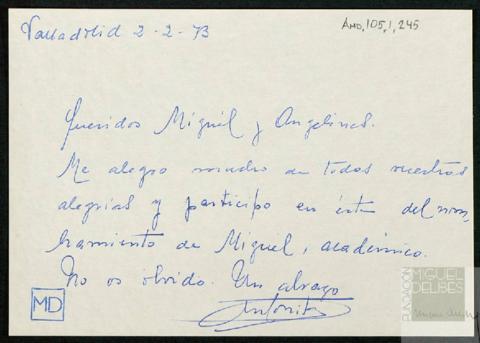 Valladolid 2-2-73
AMD,105,1,245
Queridos Miguel y Angelines.
Me alegro mucho de todas vuestras
alegrías y participo en ésta del nom,
bramiento de Miguel, académico.
No os olvido. Un abrazo
Antonita
MD
FUNDACIÓN
MIGUEL
DELIBES